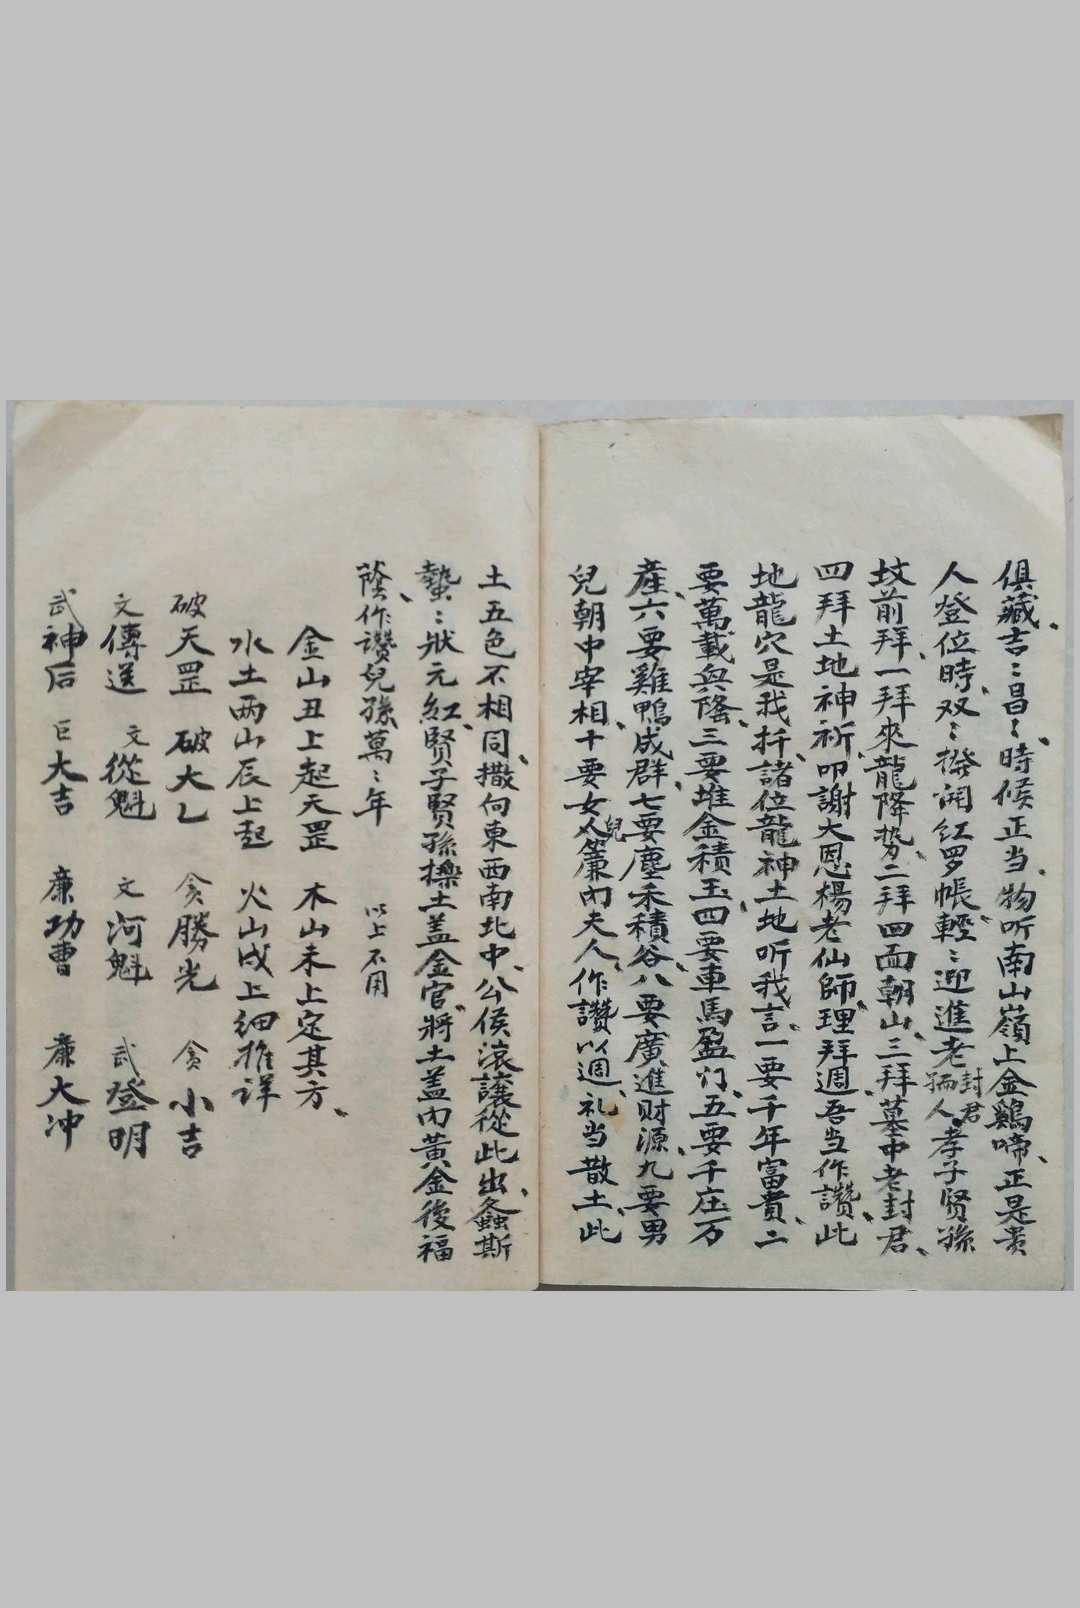 俱藏、吉〻昌〻、時候正当、物听南山嶺上金鷄啼、正是贵
人登位時、双〻撩開红罗帳、輕〻迎進老封君孺人、孝子贤孫
坟前拜、一拜來龍降势、二拜四面朝山、三拜墓中老封君、
四拜土地神祈、叩謝大恩楊老仙師、理拜週、吾当作讚、此
地龍穴是我扦、諸位龍神土地听我言、一要千年富貴、二
要萬載與隆、三要堆金積玉、四要車馬盈门、五要千庄万
產、六要雞鴨成群、七要塵禾積谷、八要廣進财源、九要男
兒朝中宰相、十要女兒人簾内夫人、作讚以週、礼当散土、此
土五色不相同、撒向東西南北中、公侯滾讓從此出、螽斯
蟄〻狀元紅、賢子賢孫擽土盖金官、將土盖内黃金後福
蔭、作讚兒孫萬〻年 以上不用
金山丑上起天罡 木山未上定其方、
水土两山辰上起 火山戌上细推详
破天罡 破大乙 贪勝光 贪小吉
文傳送 文從魁 文河魁 武登明
武神后 巨大吉 廉功曹 廉大冲